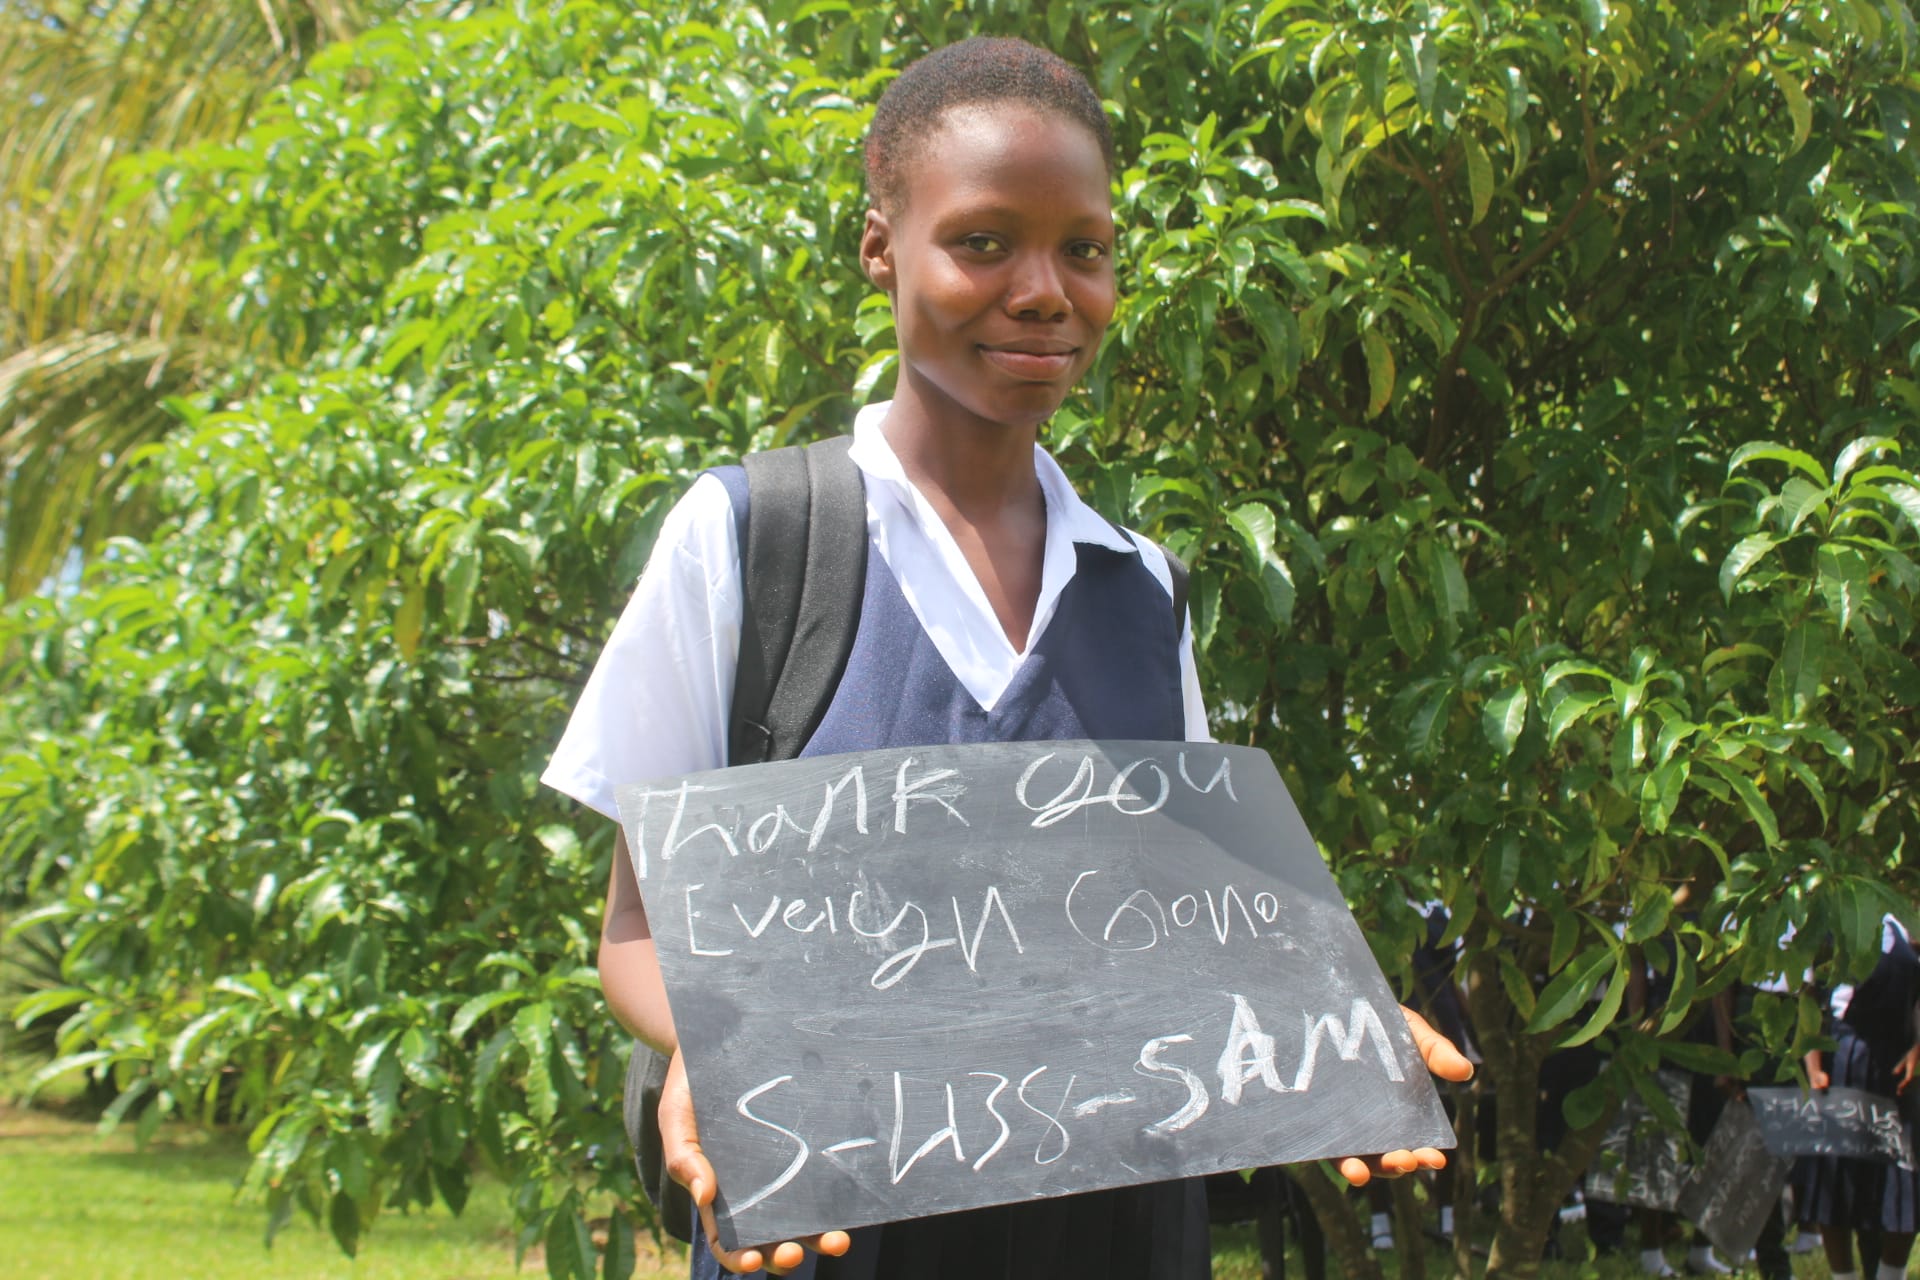 Thank you
Everlyn Giono
S-4138-SAM